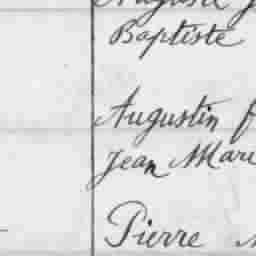 Baptiste
Augustin f
Jean Mari
Pierre